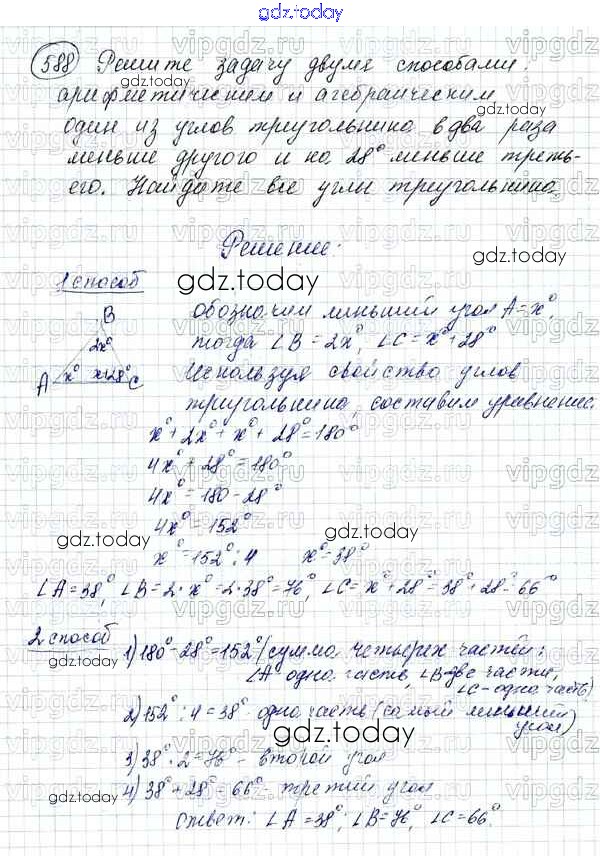 gdz.today
588 Решите задачу двумя способами:
арифметическим и алгебраическим
один из углов треугольника в два раза
меньше другого и на 28° меньше треть-
его. Найдите все углы треугольника.
Решение:
gdz.today
1 способ
B
2x°
A x° x+28° C
обозначим меньший угол A = x°,
тогда ∠B = 2x°, ∠C = x° + 28°
Используя свойство углов
треугольника, составим уравнение.
x° + 2x° + x° + 28° = 180°
4x° + 28° = 180°
4x° = 180 - 28°
4x° = 152°
x° = 152° : 4 x° = 38°
∠A = 38°, ∠B = 2·x° = 2·38° = 76°, ∠C = x° + 28° = 38° + 28° = 66°
2 способ
1) 180° - 28° = 152° (сумма четырех частей:
∠A одна часть, ∠B - две части,
∠C - одна часть)
2) 152° : 4 = 38° одна часть (самый меньший
угол)
3) 38° · 2 = 76° - второй угол
4) 38° + 28° = 66° - третий угол
Ответ: ∠A = 38°; ∠B = 76°, ∠C = 66°.
gdz.today
vipgdz.ru